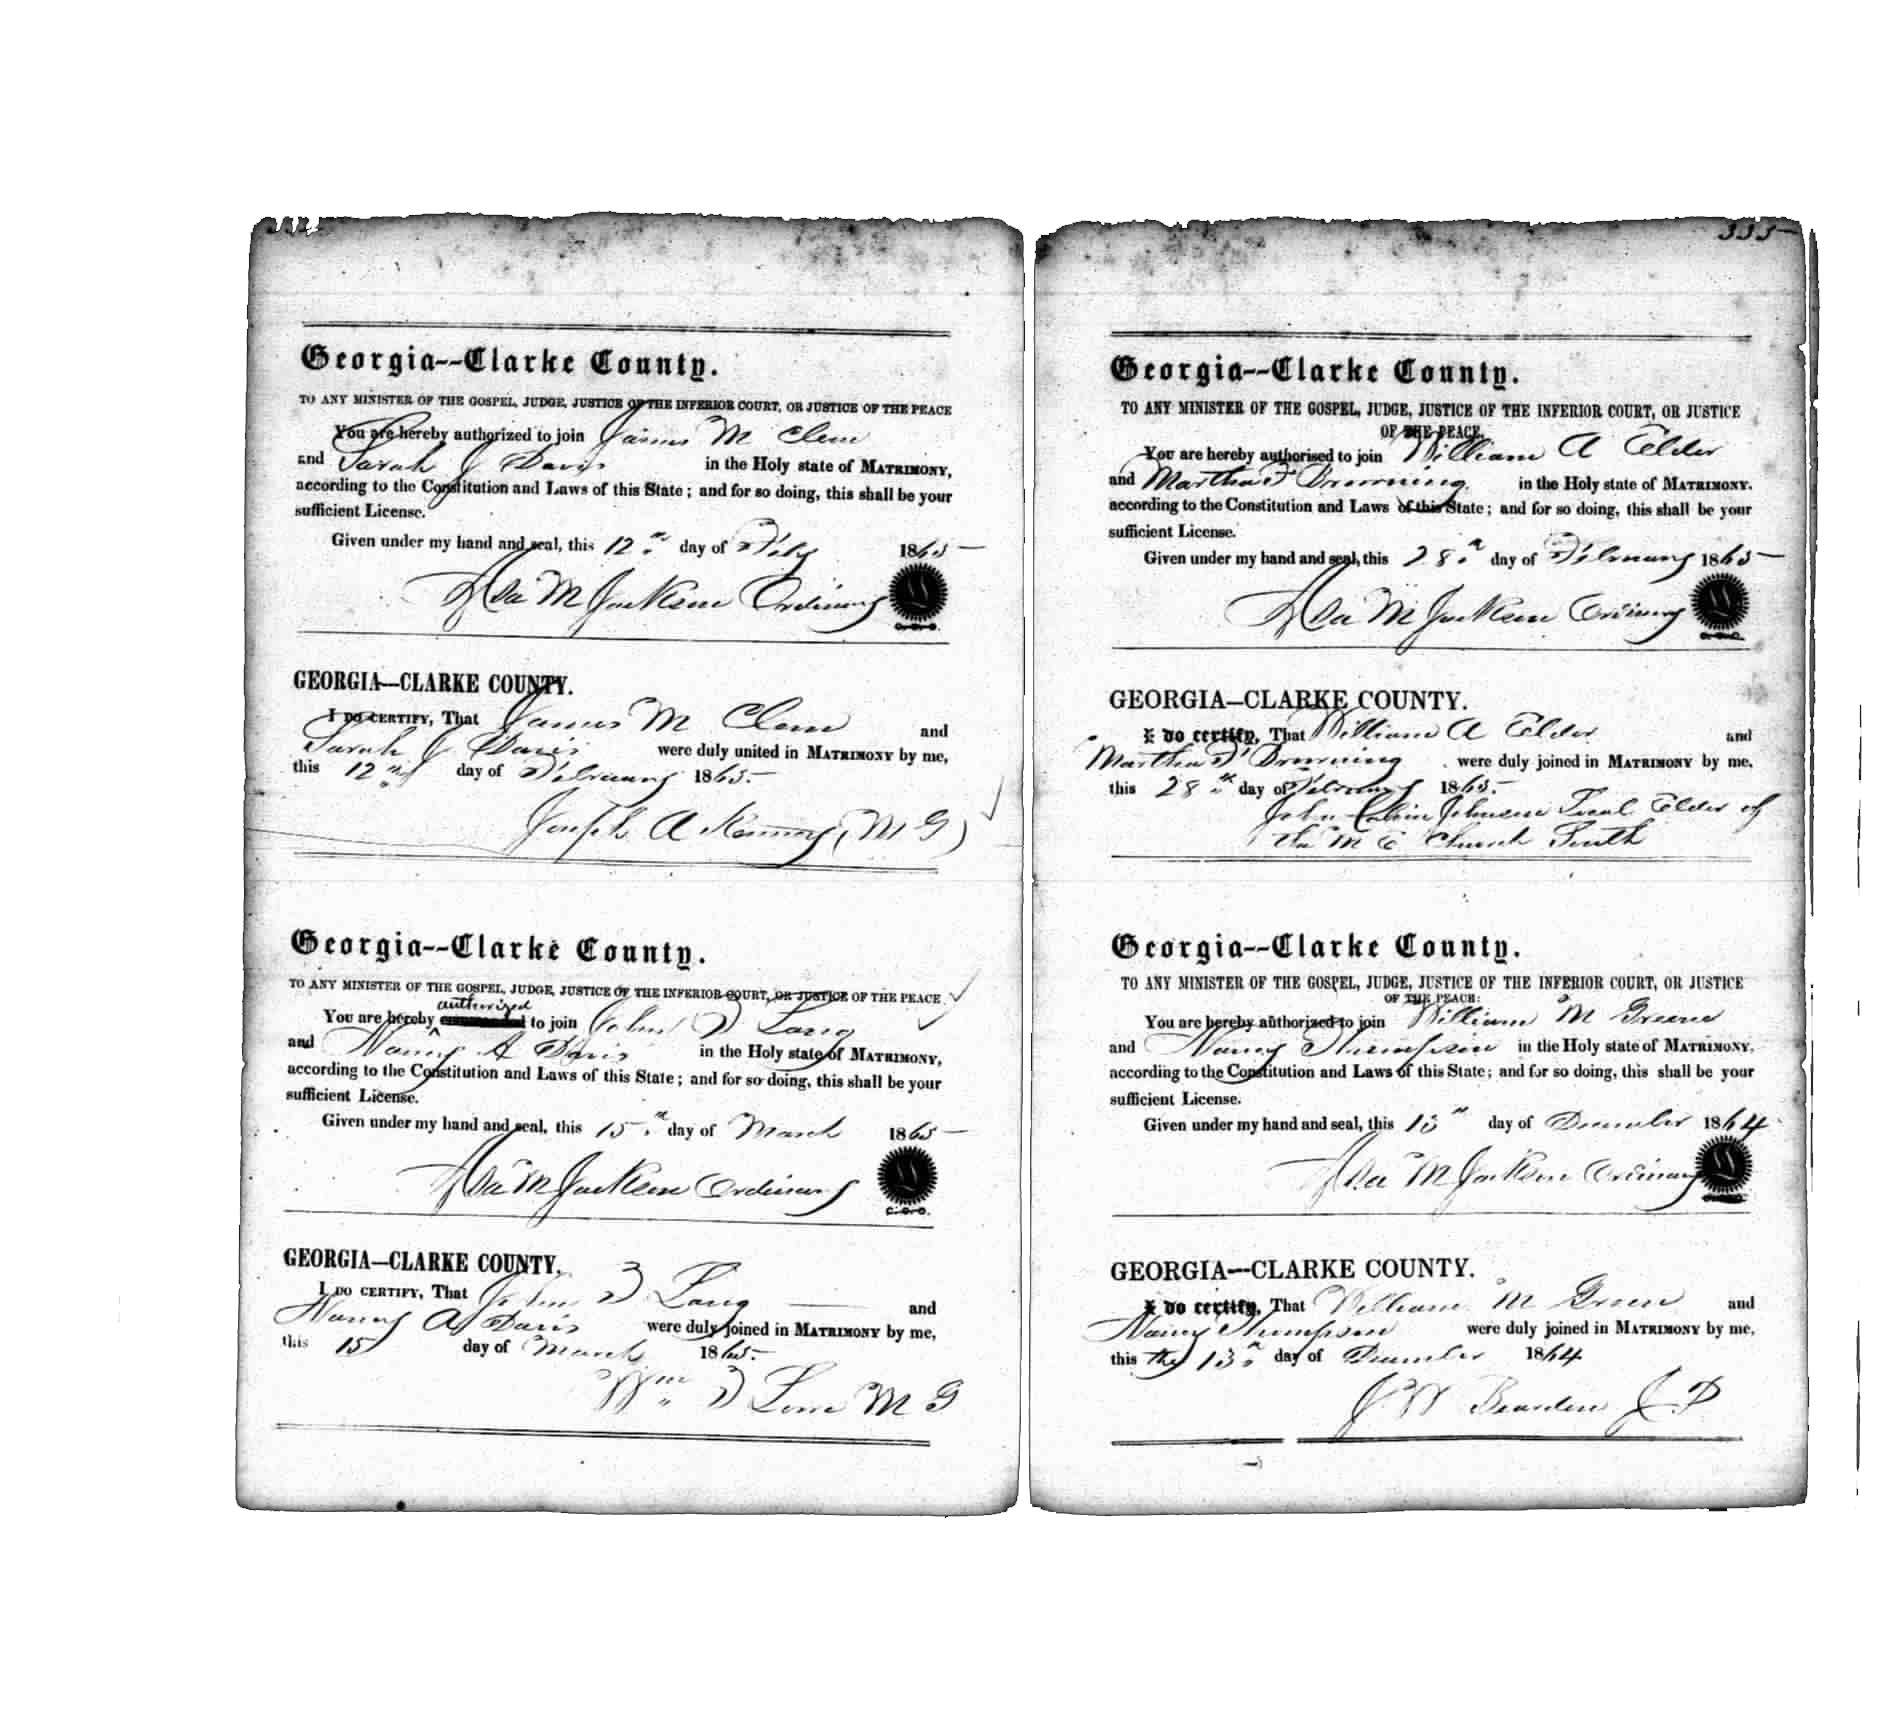 Georgia--Clarke County.
TO ANY MINISTER OF THE GOSPEL, JUDGE, JUSTICE OF THE INFERIOR COURT, OR JUSTICE OF THE PEACE
You are hereby authorized to join James M Clem
and Sarah J Davis in the Holy state of MATRIMONY,
according to the Constitution and Laws of this State; and for so doing, this shall be your
sufficient License.
Given under my hand and seal, this 12th day of Feby 1865
Asa M Jackson Ordinary
GEORGIA—CLARKE COUNTY.
I DO CERTIFY, That James M Clem and
Sarah J Davis were duly united in MATRIMONY by me,
this 12th day of February 1865.
Joseph A (M G)
Georgia--Clarke County.
TO ANY MINISTER OF THE GOSPEL, JUDGE, JUSTICE OF THE INFERIOR COURT, OR JUSTICE OF THE PEACE
authorized
You are hereby to join John D Lang
and Nancy A Davis in the Holy state of MATRIMONY,
according to the Constitution and Laws of this State; and for so doing, this shall be your
sufficient License.
Given under my hand and seal, this 15th day of March 1865
Asa M Jackson Ordinary
GEORGIA—CLARKE COUNTY.
I DO CERTIFY, That John D Lang and
Nancy A Davis were duly joined in MATRIMONY by me,
this 15 day of March 1865.
Wm D M G
335
Georgia--Clarke County.
TO ANY MINISTER OF THE GOSPEL, JUDGE, JUSTICE OF THE INFERIOR COURT, OR JUSTICE
OF THE PEACE.
You are hereby authorised to join William A Elder
and Martha F Browning in the Holy state of MATRIMONY.
according to the Constitution and Laws of this State; and for so doing, this shall be your
sufficient License.
Given under my hand and seal, this 28th day of February 1865
Asa M Jackson Ordinary
GEORGIA—CLARKE COUNTY.
I do certify, That William A Elder and
Martha F Browning were duly joined in MATRIMONY by me,
this 28th day of February 1865.
John Calvin Johnson Local Elder of
the M E Church South
Georgia--Clarke County.
TO ANY MINISTER OF THE GOSPEL, JUDGE, JUSTICE OF THE INFERIOR COURT, OR JUSTICE
OF THE PEACE:
You are hereby authorized to join William M Green
and Nancy Thompson in the Holy state of MATRIMONY,
according to the Constitution and Laws of this State; and for so doing, this shall be your
sufficient License.
Given under my hand and seal, this 13th day of December 1864
Asa M Jackson Ordinary
GEORGIA—CLARKE COUNTY.
I do certify, That William M Green and
Nancy Thompson were duly joined in MATRIMONY by me,
this the 13th day of December 1864
J W Bearden J P